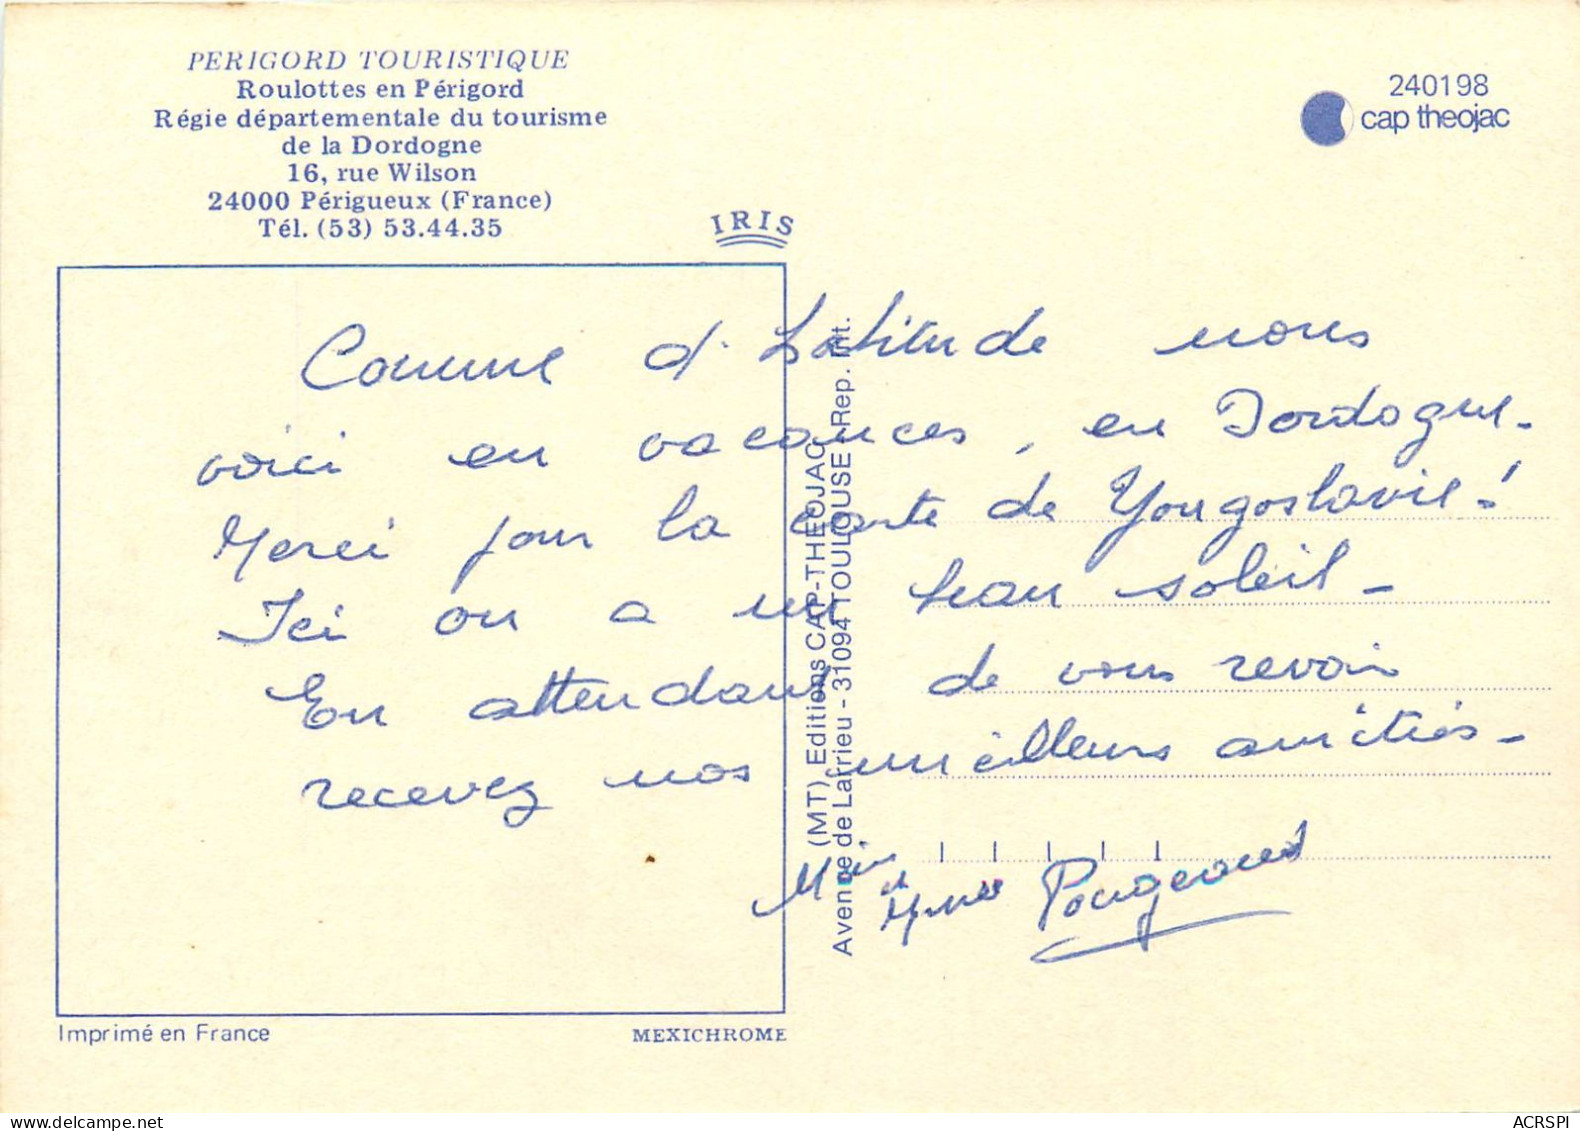 PERIGORD TOURISTIQUE
Roulottes en Périgord
Régie départementale du tourisme
de la Dordogne
16, rue Wilson
24000 Périgueux (France)
Tél. (53) 53.44.35
IRIS
240198
cap theojac
Comme d'habitude nous
voici en vacances, en Dordogne.
Merci pour la carte de Yougoslavie!
Ici on a un beau soleil -
En attendant de vous revoir
recevez nos meilleurs amitiés -
et
Mme Pougeaud
(MT) Editions CAP-THEOJAC
Avenue de Larrieu - 31094 TOULOUSE - Rep. Int.
Imprimé en France
MEXICHROME
ACRSPI